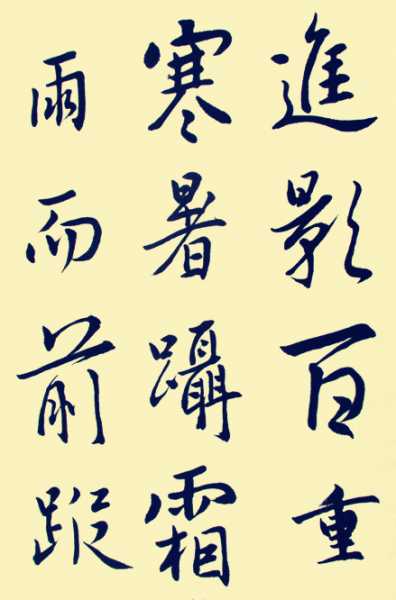 進影百重
寒暑躡霜
雨而前蹤